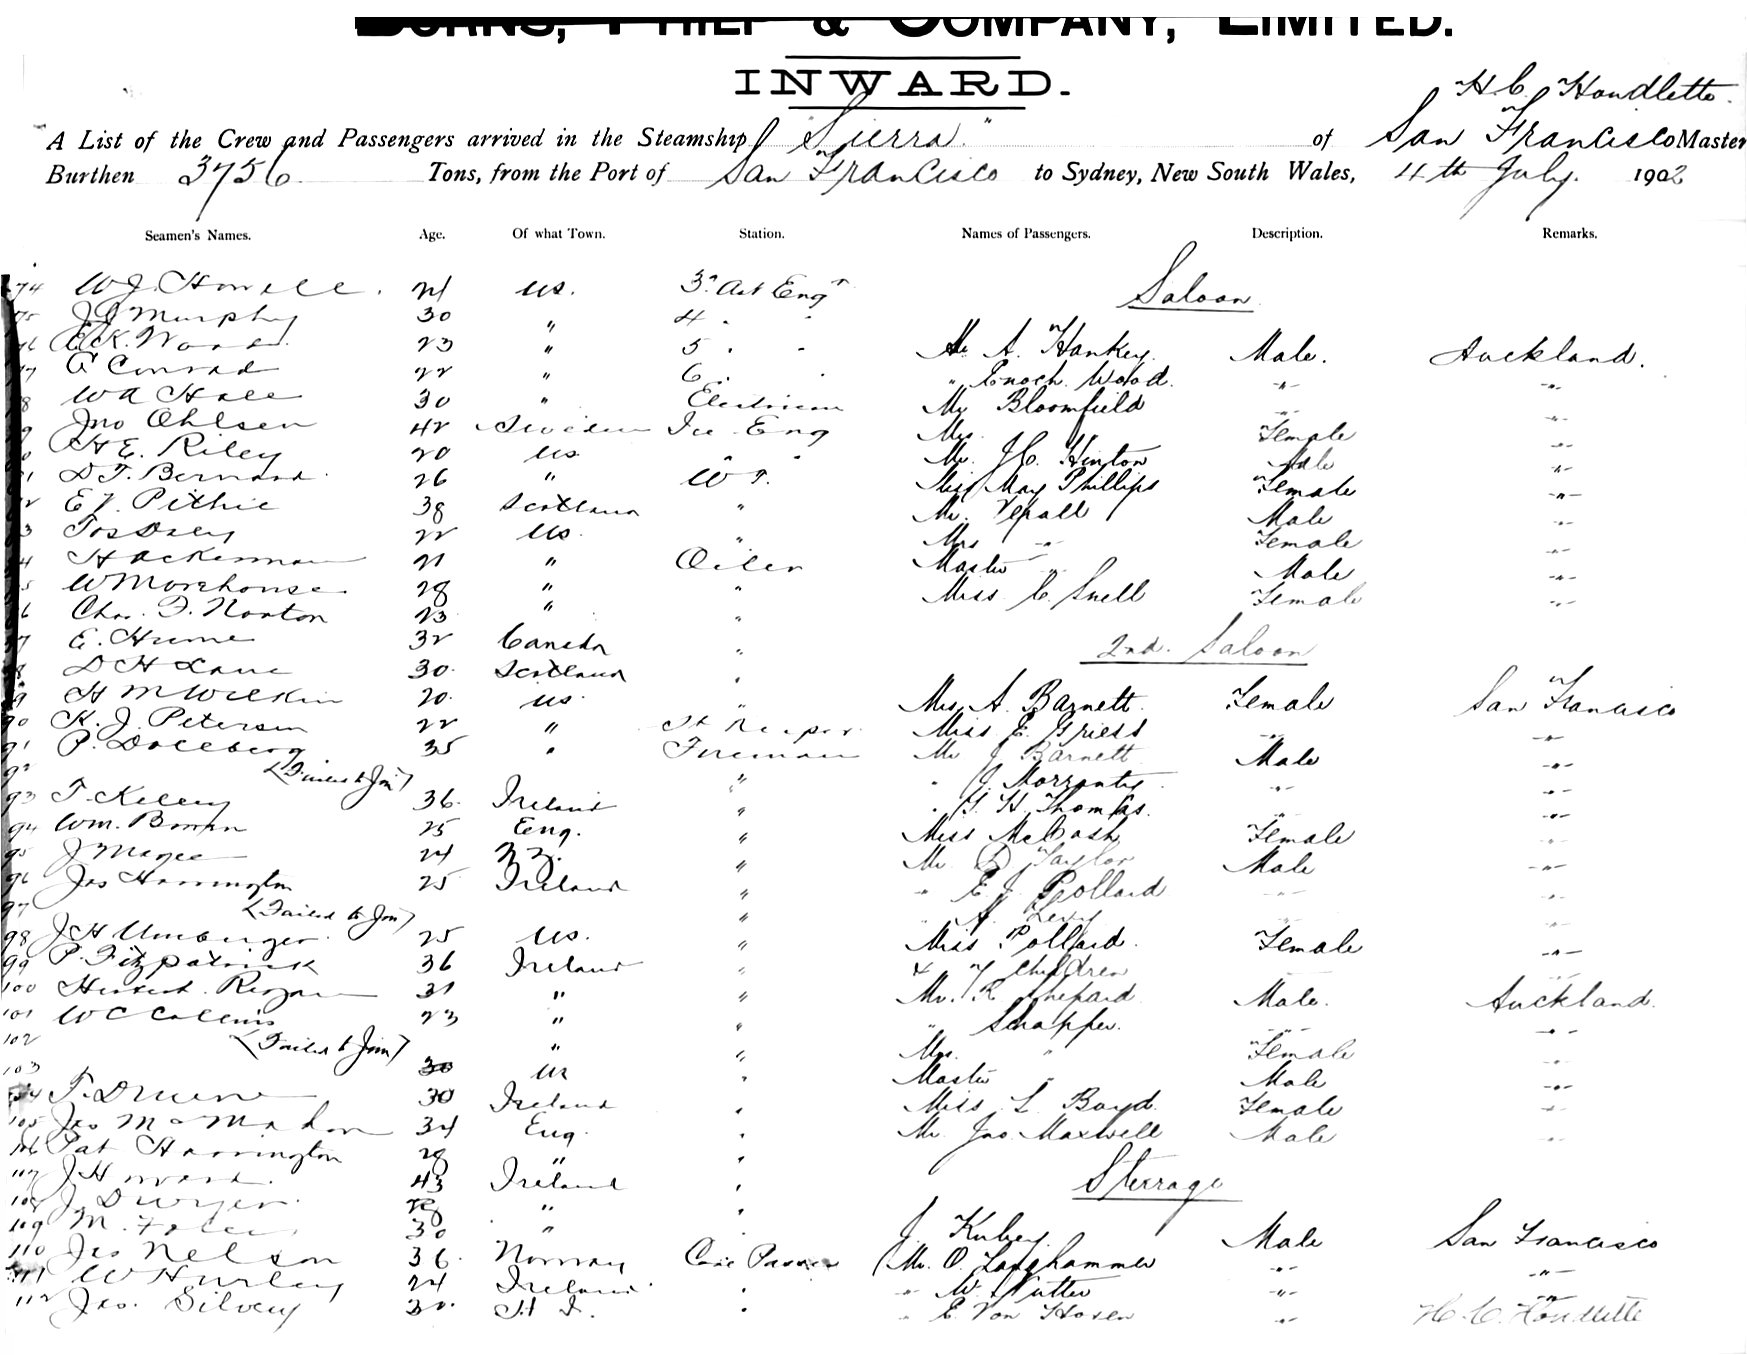 BURNS, PHILP & COMPANY, LIMITED.
INWARD.
H.C. Houdlette.
A List of the Crew and Passengers arrived in the Steamship "Sierra" of San Francisco Master
Burthen 3756 Tons, from the Port of San Francisco to Sydney, New South Wales, 4th July. 1902
Seamen's Names. Age. Of what Town. Station. Names of Passengers. Description. Remarks.
74 W J Howell. 21 US. 3rd Ast Engr
Saloon
J J Murphy 30 " 4 "
Wood 23 " 5 " " Mr. A. Hankey. Male. Auckland.
Conrad 22 " 6 " " Enoch Wood. " "
W A Hall 30 " Electrician Mr Bloomfield " "
Jno Ohlsen 42 Sweden Ice Eng Mrs " Female "
H E. Riley 20 US " " Mr. J.C. Hinton Male "
D. F. Bernard 26 " W T. Miss May Phillips Female "
E J. Pithie 38 Scotland " Mr. Male "
22 US. " Mrs " Female "
H Ackerman 21 " Oiler Master " Male "
W Morehouse 28 " " Miss C. Snell Female "
Chas. F. Norton 23 " "
E. Hume 32 Canada "
2nd. Saloon
D H Lane 30. Scotland "
H M Wilkin 20. US " Mrs A. Barnett. Female San Francisco
90 K. J. Petersen 22 " St Keeper Miss E. Griess " "
91 P. 35 " Fireman Mr J Barnett Male "
92 (Failed to Join) " " J. " "
93 T. Kelley 36. Ireland " " G. H. Thomas. " "
94 Wm. 25 Eng. " Miss McCash Female "
95 J Magee 24 N Z. " Mr. Taylor Male "
96 Jas Harrington 25 Ireland " " E. J. Pollard " "
97 (Failed to Join) " " A. Levy "
98 J H Umbarger 25 US. " Miss Pollard. Female "
99 P. Fitzpatrick 36 Ireland " & 7 Children "
100 31 " " Mr. R. Shepard Male. Auckland.
101 W C Collins 23 " " " Schapper. " "
102 (Failed to Join) " " Mrs. " Female "
103 30 US " Master " Male "
104 T. 30 Ireland " Miss L. Boyd. Female "
105 Jas McMahon 34 Eng. " Mr. Jno Maxwell Male "
106 Pat Harrington 28 " "
Steerage
107 J Howard. 43 Ireland "
108 J. Dwyer. 28 " "
109 M. 30 " J. Male San Francisco
110 Jas Nelson 36. Norway Coal Passer Mr. O. Langhammer " "
111 W Hurley 24 Ireland " " W. " "
112 Jas. Silvey 30. " " E. Von " H. C. Houdlette